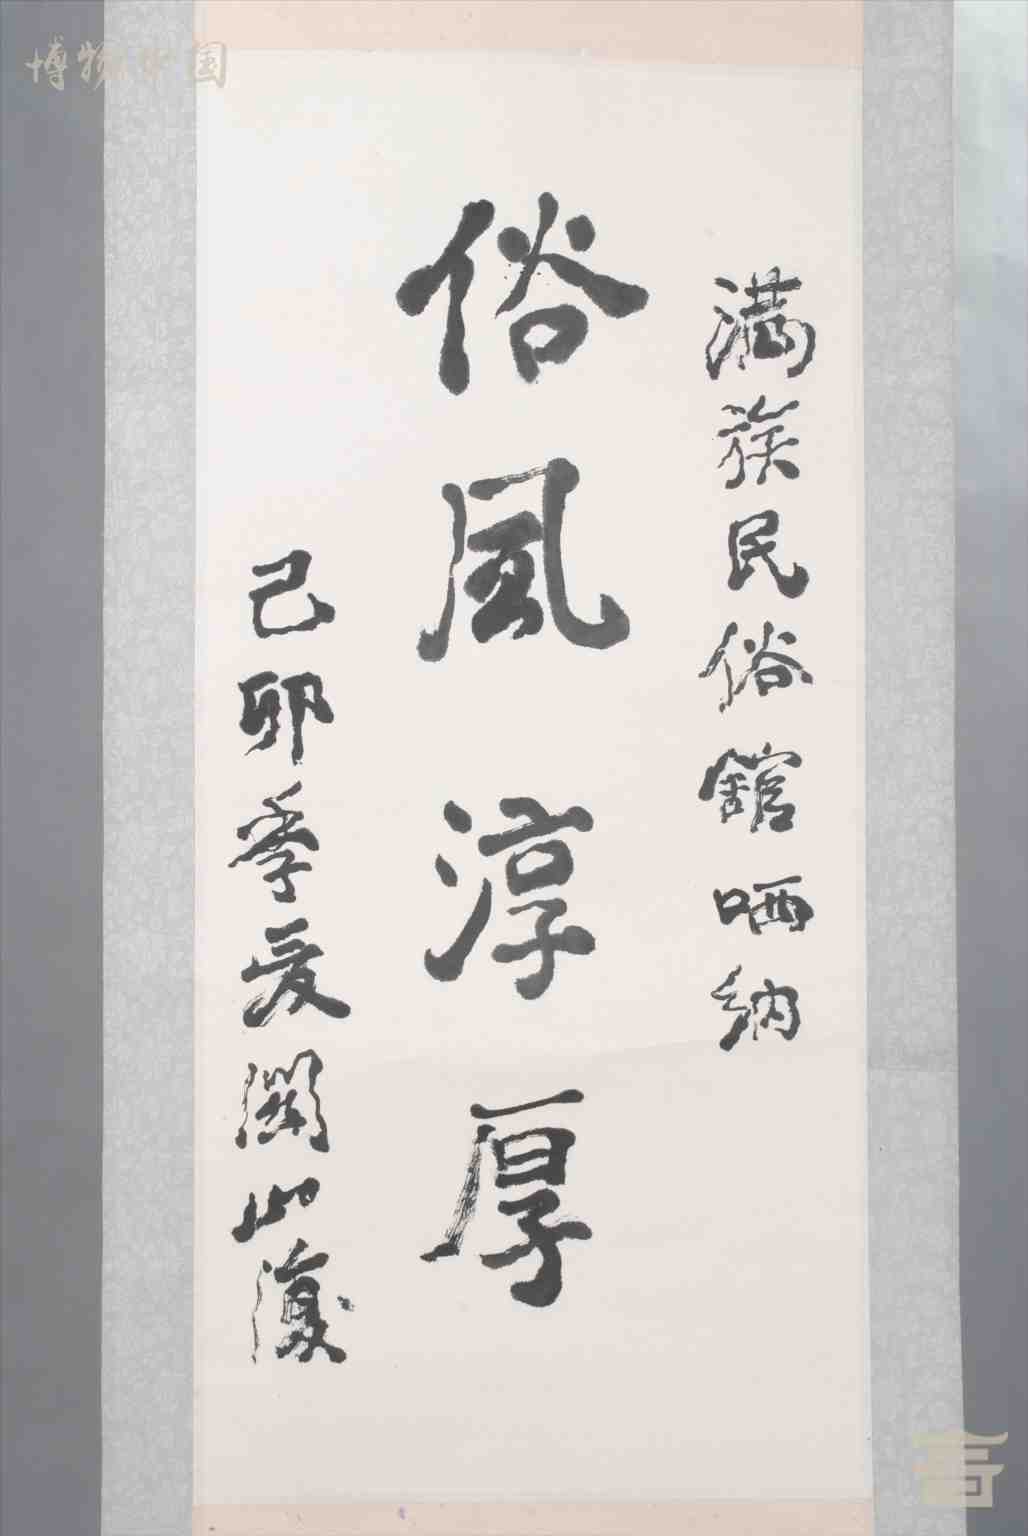 博物中国
滿族民俗舘哂納
俗風淳厚
己卯季夏關山復